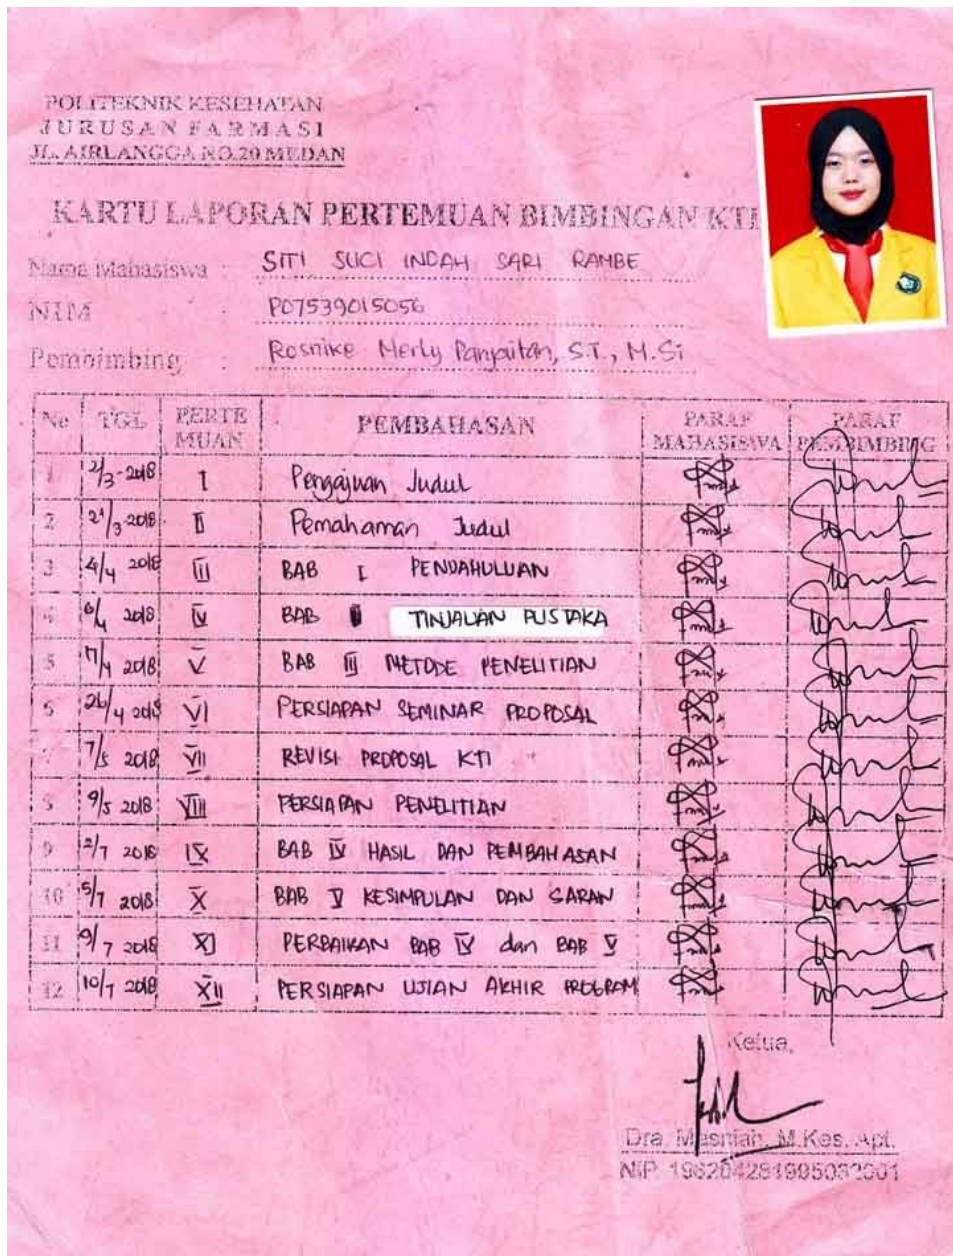 POLITEKNIK KESEHATAN
JURUSAN FARMASI
JL. AIRLANGGA NO.20 MEDAN
KARTU LAPORAN PERTEMUAN BIMBINGAN KTI
Nama Mahasiswa : SITI SUCI INDAH SARI RAMBE
NIM : P07539015056
Pembimbing : Rosnike Merly Panjaitan, S.T., M.Si
No TGL PERTEMUAN PEMBAHASAN PARAF MAHASISWA PARAF PEMBIMBING
1 2/3-2018 I Pengajuan Judul
2 21/3 2018 II Pemahaman Judul
3 4/4 2018 III BAB I PENDAHULUAN
4 6/4 2018 IV BAB II TINJAUAN PUSTAKA
5 17/4 2018 V BAB III METODE PENELITIAN
6 26/4 2018 VI PERSIAPAN SEMINAR PROPOSAL
7 7/5 2018 VII REVISI PROPOSAL KTI
8 9/5 2018 VIII PERSIAPAN PENELITIAN
9 2/7 2018 IX BAB IV HASIL DAN PEMBAHASAN
10 5/7 2018 X BAB V KESIMPULAN DAN SARAN
11 9/7 2018 XI PERBAIKAN BAB IV dan BAB V
12 10/7 2018 XII PERSIAPAN UJIAN AKHIR PROGRAM
Ketua,
Dra. Masniah, M.Kes, Apt.
NIP. 196204281995032001